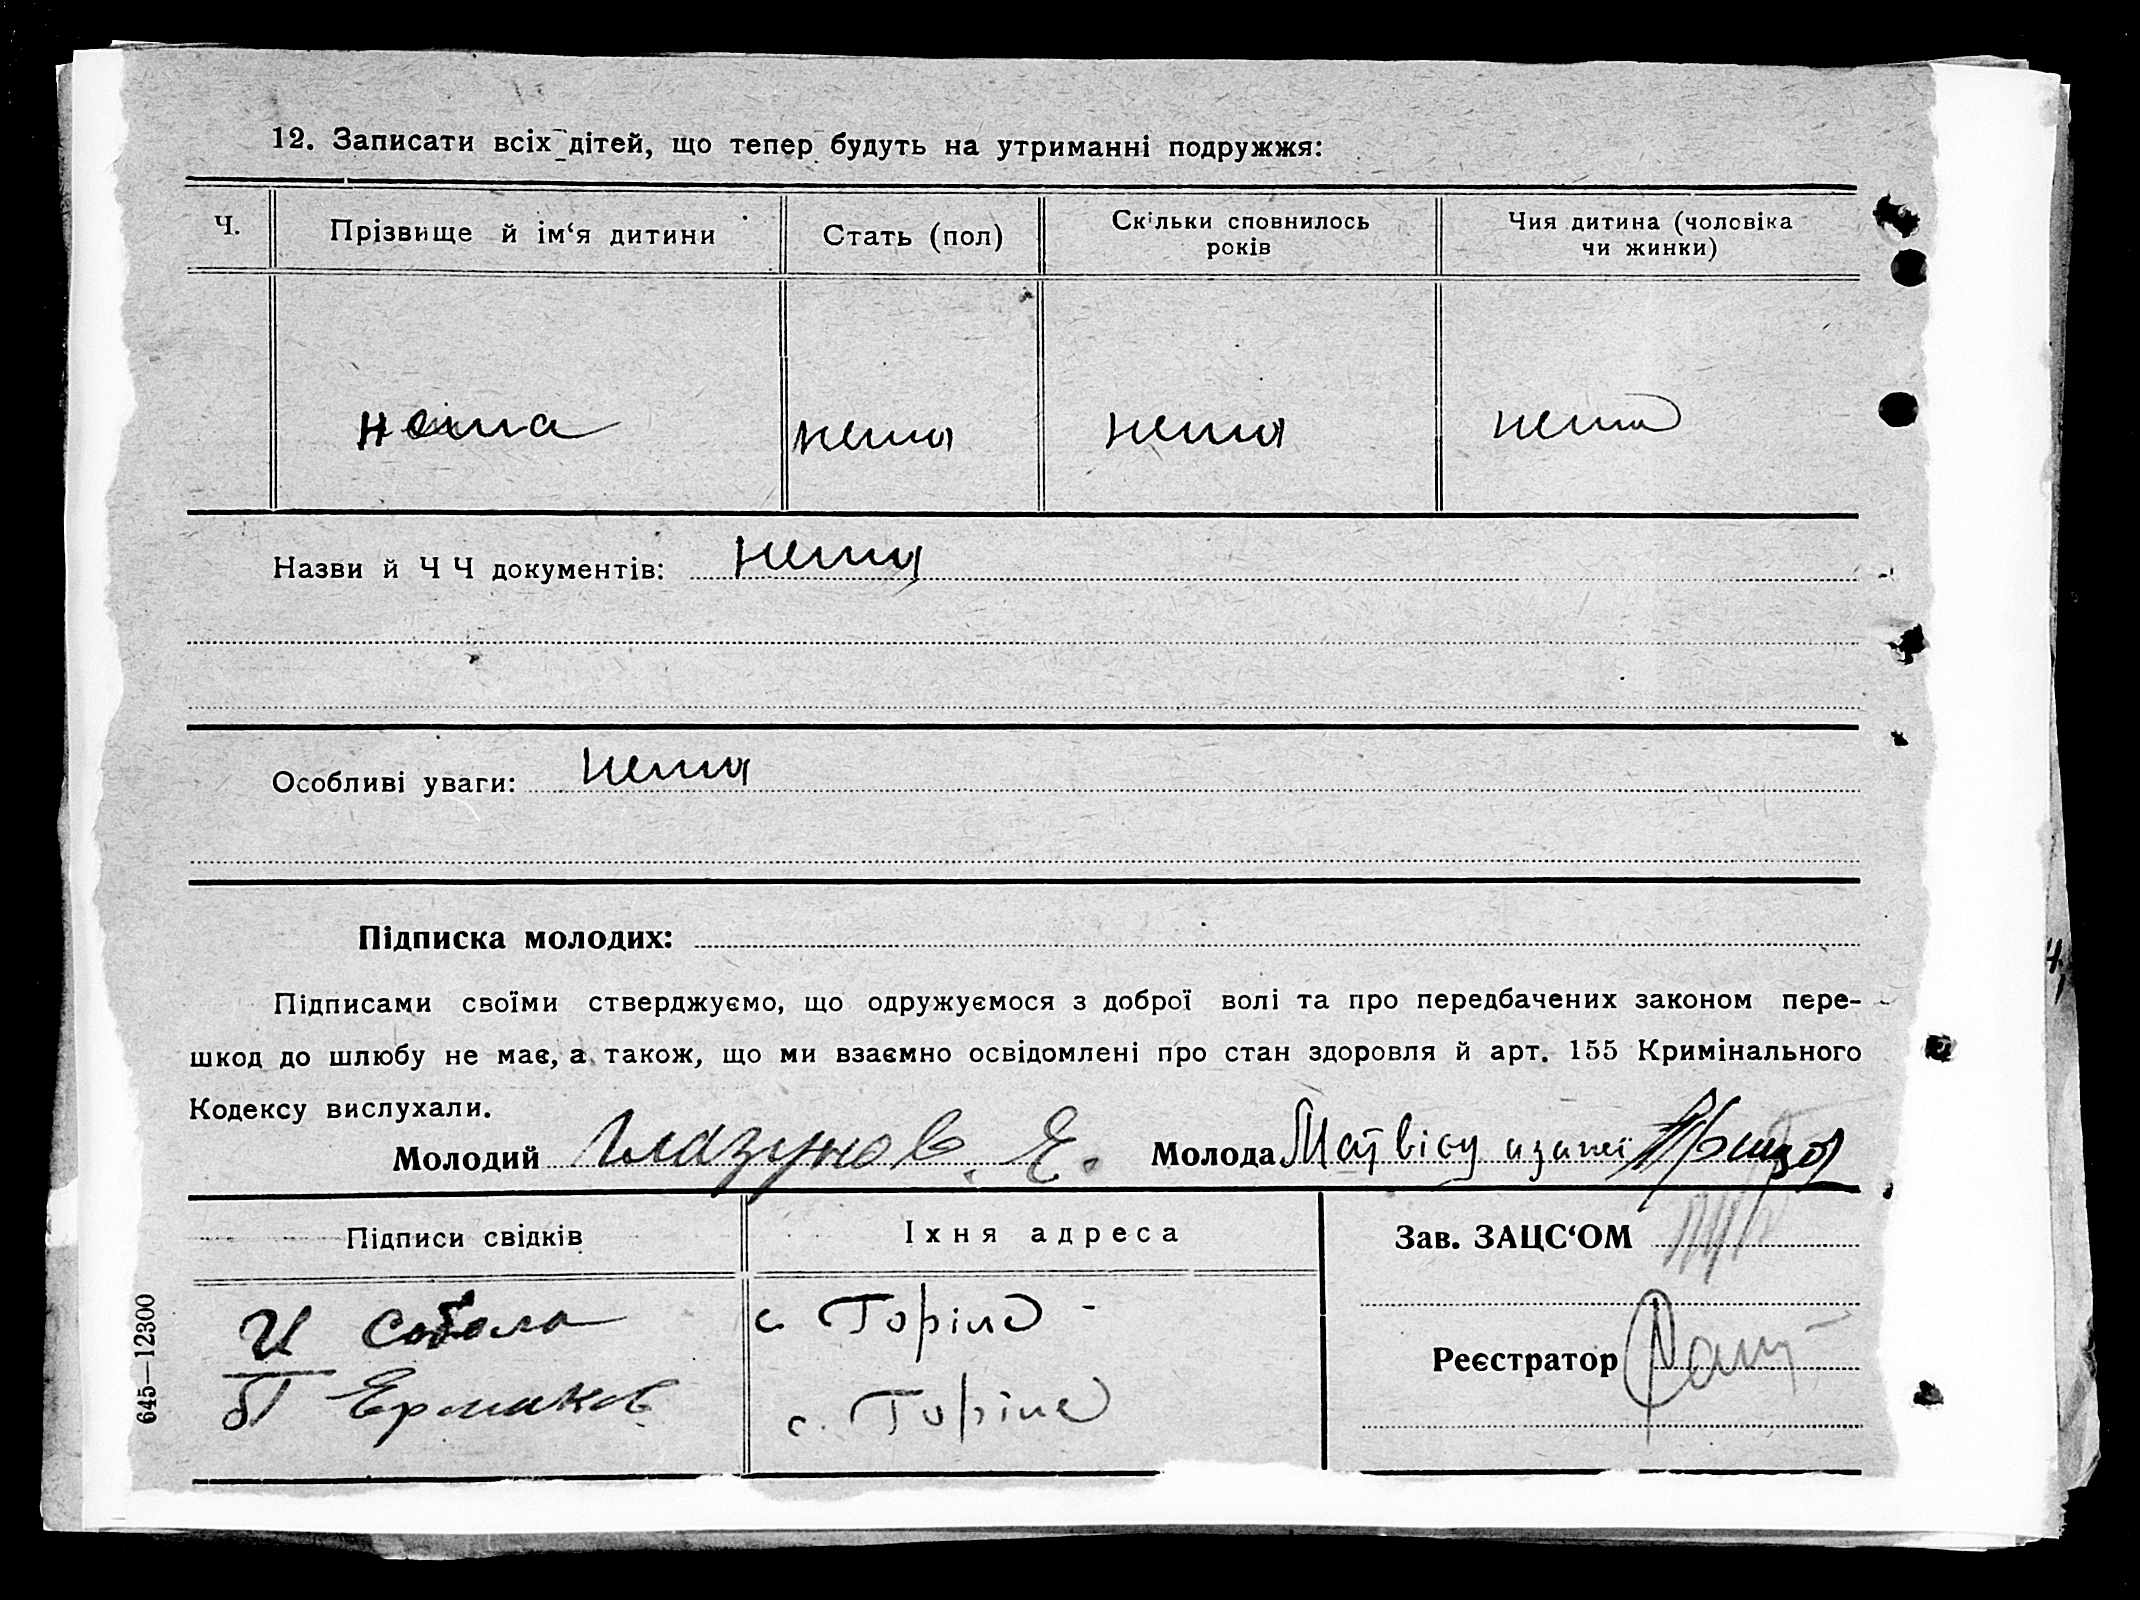 12. Записати всіх дітей, що тепер будуть на утриманні подружжя:
Ч. Прізвище й ім‘я дитини Стать (пол) Скільки сповнилось років Чия дитина (чоловіка чи жинки)
нема нема нема нема
Назви й Ч Ч документів: нема
Особливі уваги: нема
Підписка молодих:
Підписами своїми стверджуємо, що одружуємося з доброї волі та про передбачених законом пере-
шкод до шлюбу не має, а також, що ми взаємно освідомлені про стан здоровля й арт. 155 Кримінального
Кодексу вислухали.
Молодий Глазунов. Е. Молода
Підписи свідків Іхня адреса Зав. ЗАЦС‘ОМ
И Собола с Горіле
Реєстратор
П Ермаков с. Горіле
645—12300